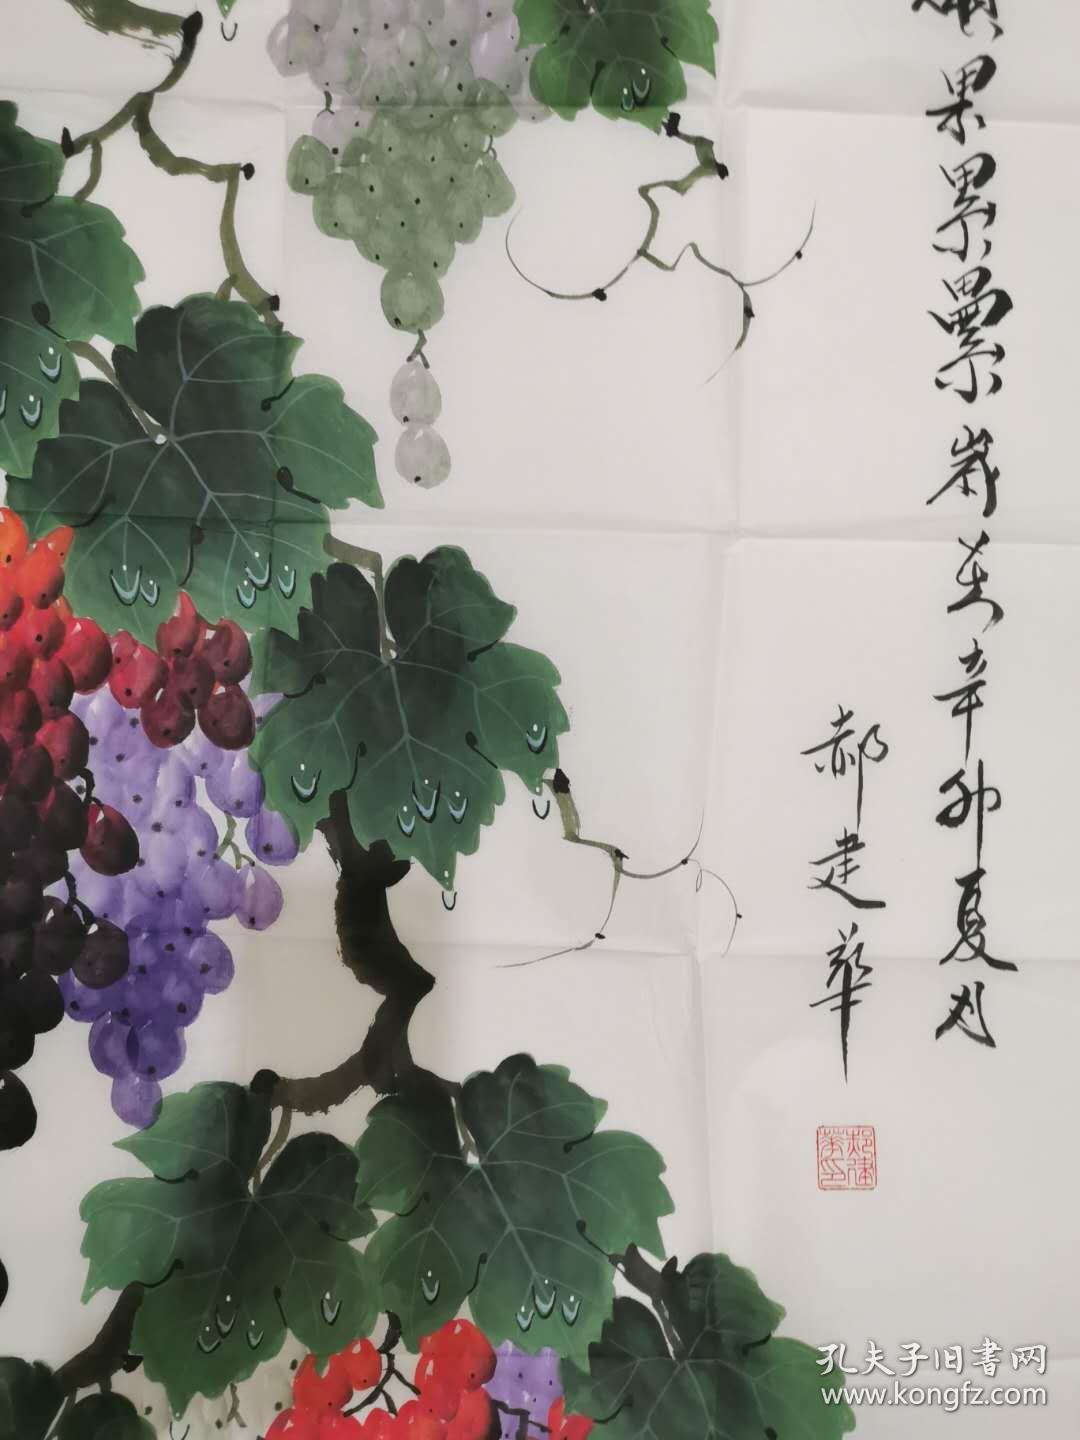 碩果累累歲在辛卯夏月
郝建華
郝建華印
孔夫子旧書网
www.kongfz.com